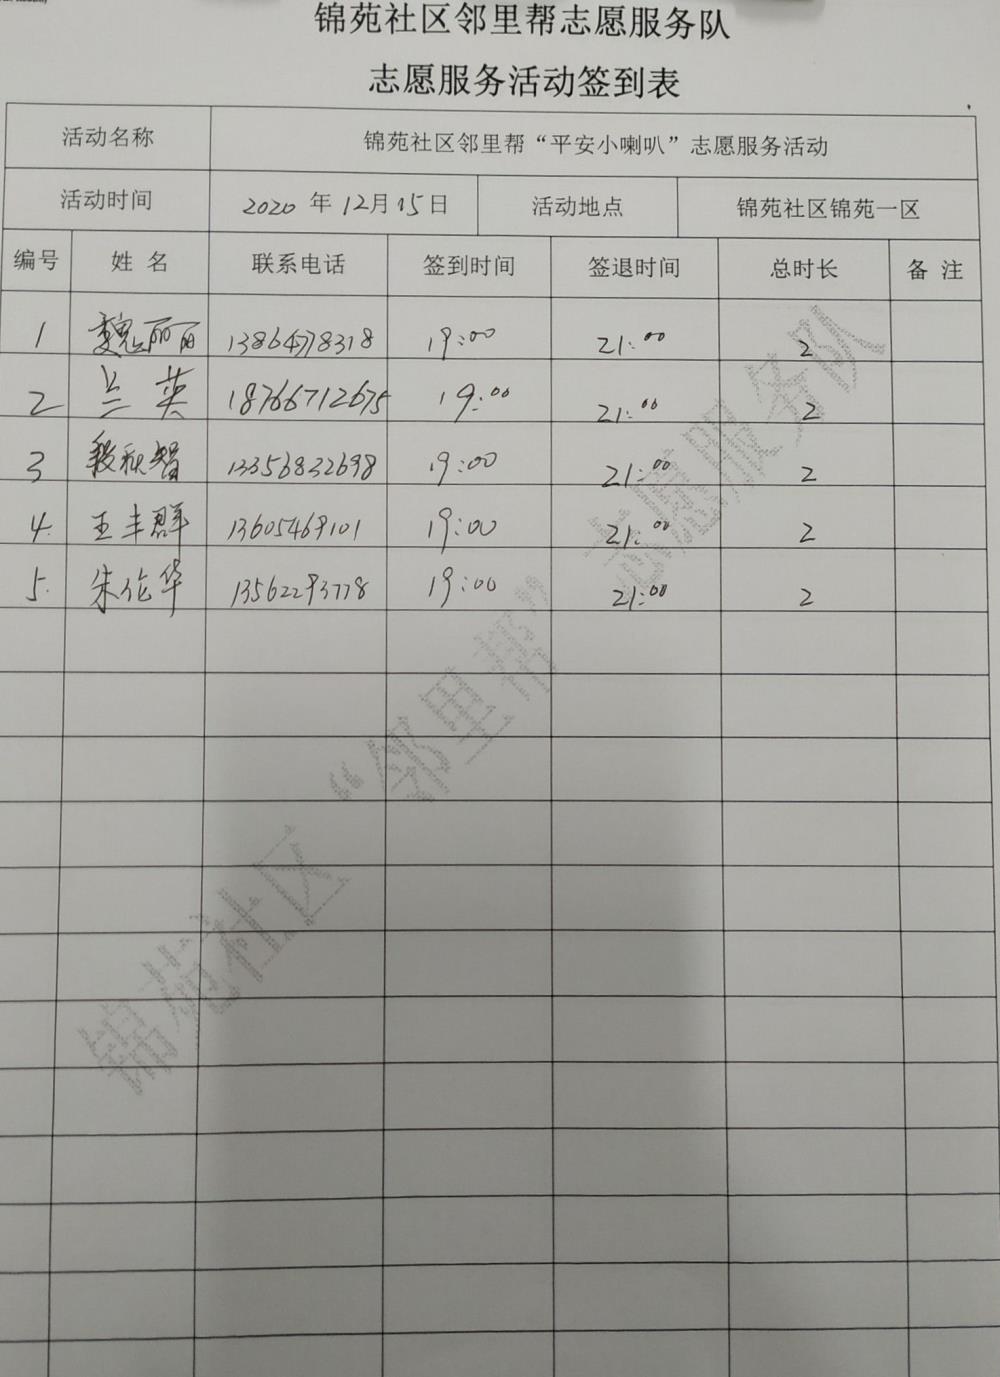 锦苑社区邻里帮志愿服务队
志愿服务活动签到表
活动名称 锦苑社区邻里帮“平安小喇叭”志愿服务活动
活动时间 2020 年 12月 15 日 活动地点 锦苑社区锦苑一区
编号 姓 名 联系电话 签到时间 签退时间 总时长 备 注
1 魏丽丽 13864778318 19:00 21:00 2
2 兰英 18766712675 19:00 21:00 2
3 段秋智 13356832698 19:00 21:00 2
4. 王丰群 13605469101 19:00 21:00 2
5. 朱伦华 13562293778 19:00 21:00 2
锦苑社区“邻里帮”志愿服务队